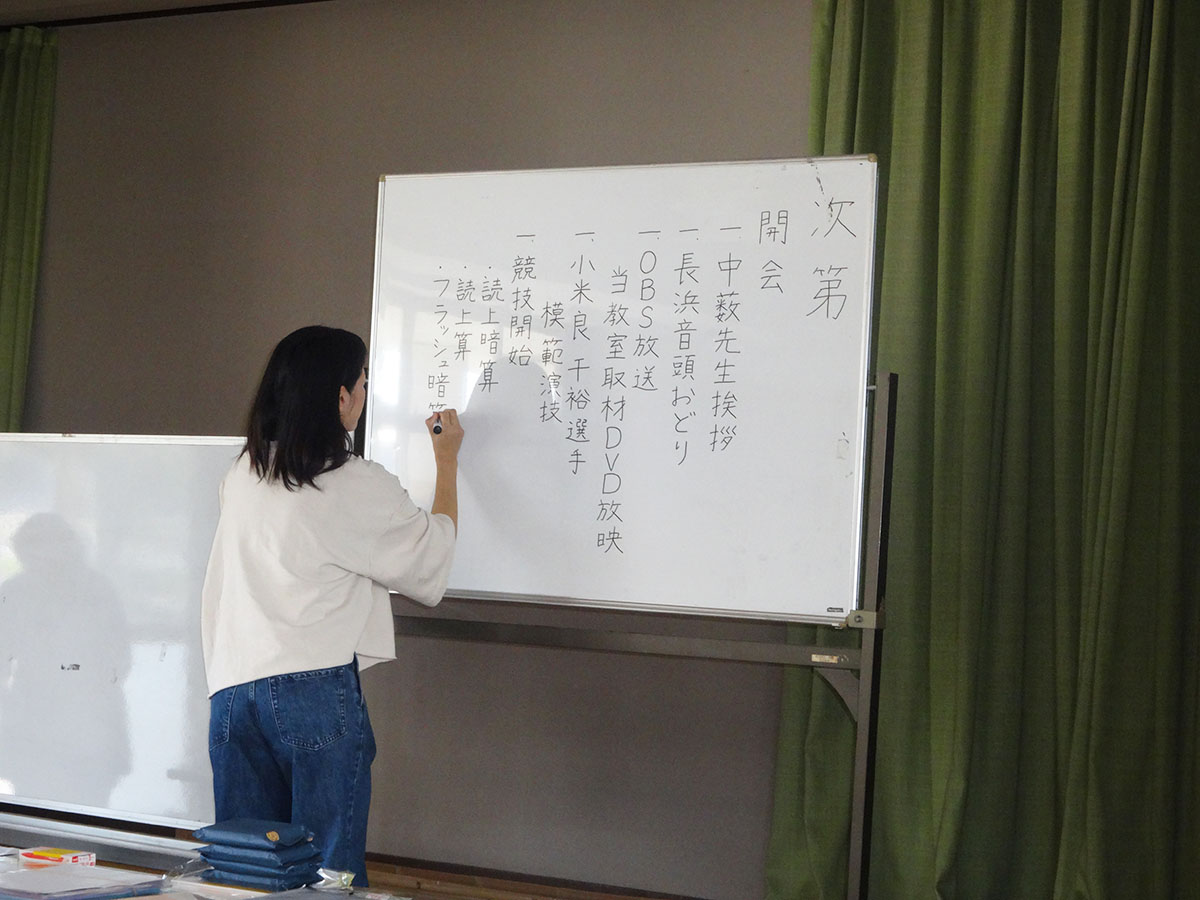 次第
開会
一、中薮先生挨拶
一、長浜音頭おどり
一、OBS放送
当教室取材DVD放映
一、小米良 千裕選手
模範演技
一、競技開始
・読上暗算
・読上算
・フラッシュ暗算